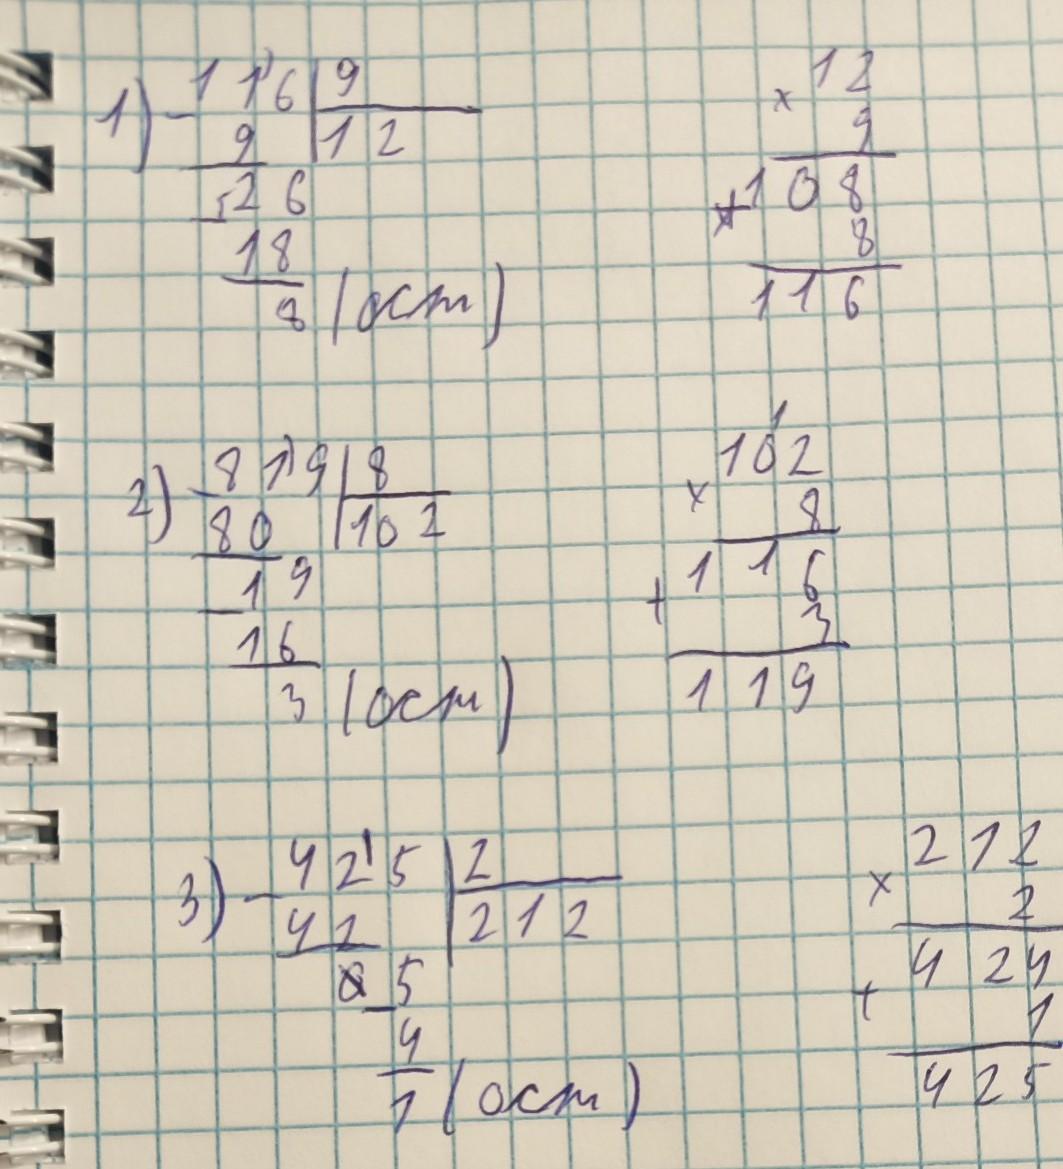 1) - 116 | 9
9 | 12
- 26
18
8 (ост)
× 12
9
+ 108
8
116
2) - 819 | 8
80 | 102
- 19
16
3 (ост)
1
× 102
8
+ 116
3
119
3) - 425 | 2
42 | 212
0 - 5
4
1 (ост)
× 212
2
+ 424
1
425